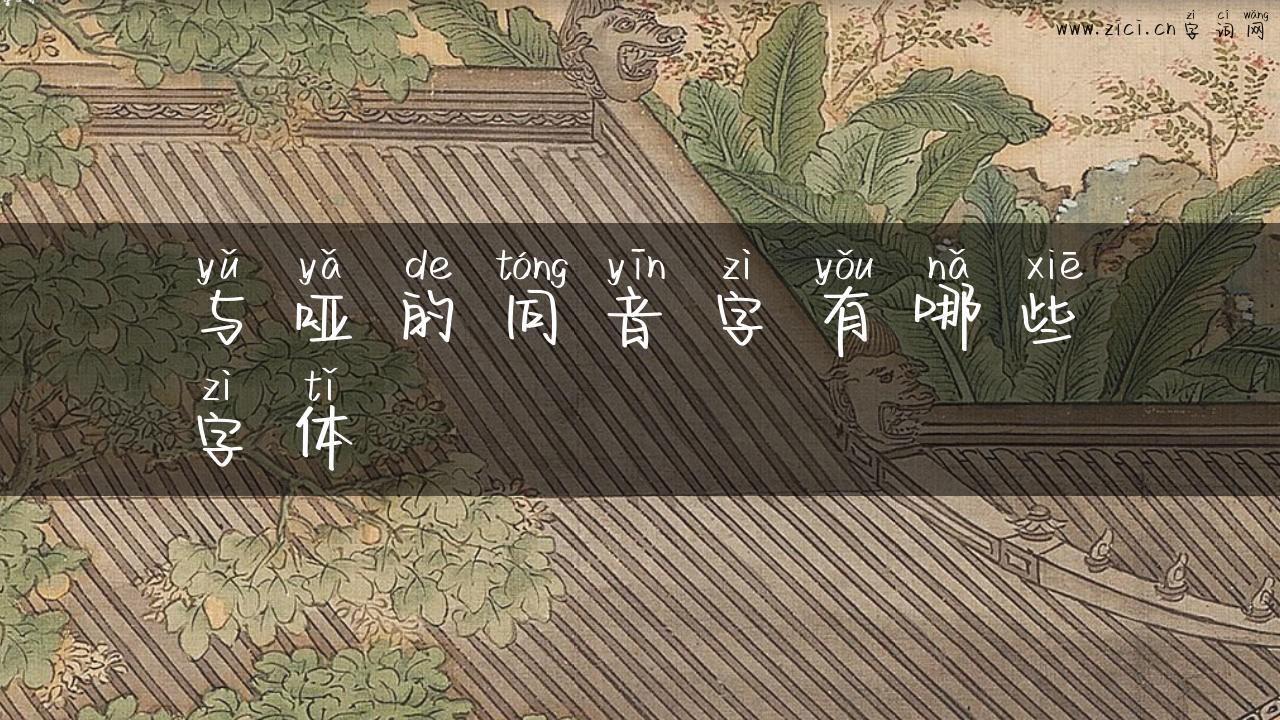 zì cí wǎng
www.zici.cn 字词网
yǔ yǎ de tóng yīn zì yǒu nǎ xiē
与哑的同音字有哪些
zì tǐ
字体